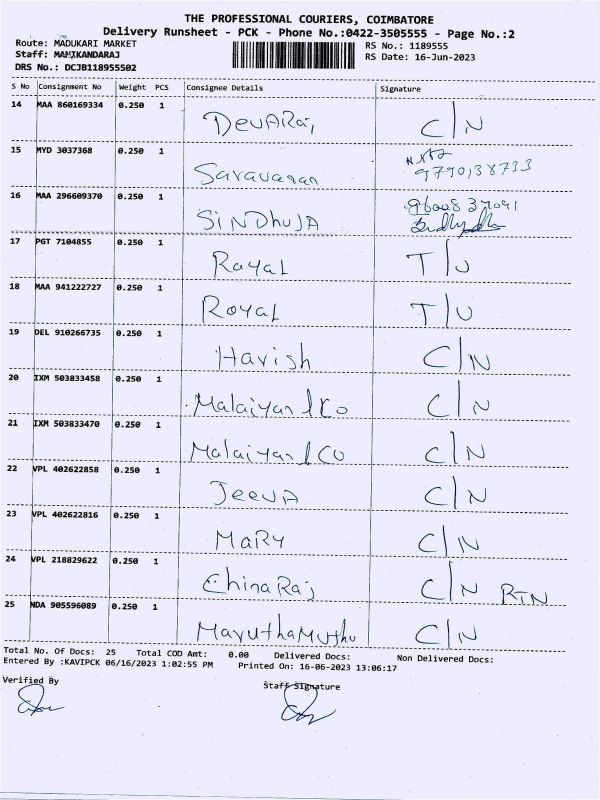 THE PROFESSIONAL COURIERS, COIMBATORE
Delivery Runsheet - PCK - Phone No.:0422-3505555 - Page No.:2
Route: MADUKARI MARKET
Staff: MANIKANDARAJ
DRS No.: DCJB118955502
RS No.: 1189555
RS Date: 16-Jun-2023
S No Consignment No Weight PCS Consignee Details Signature
14 MAA 860169334 0.250 1 DEVARaj C/N
15 MYD 3037368 0.250 1 Saravanan 9790138733
16 MAA 296609370 0.250 1 SiNDhuJA 9600837091
17 PGT 7104855 0.250 1 Royal T/U
18 MAA 941222727 0.250 1 Royal T/U
19 DEL 910266735 0.250 1 Harish C/N
20 IXM 503833458 0.250 1 Malaiyan & Co C/N
21 IXM 503833470 0.250 1 Malaiyan & Co C/N
22 VPL 402622858 0.250 1 JeevA C/N
23 VPL 402622816 0.250 1 MaRy C/N
24 VPL 218829622 0.250 1 ChinaRaj C/N RTN
25 NDA 905596089 0.250 1 MaruthaMuthu C/N
Total No. Of Docs: 25 Total COD Amt: 0.00 Delivered Docs: Non Delivered Docs:
Entered By :KAVIPCK 06/16/2023 1:02:55 PM Printed On: 16-06-2023 13:06:17
Verified By Staff Signature